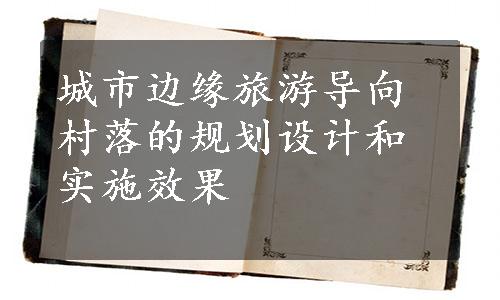 城市边缘旅游导向
村落的规划设计和
实施效果